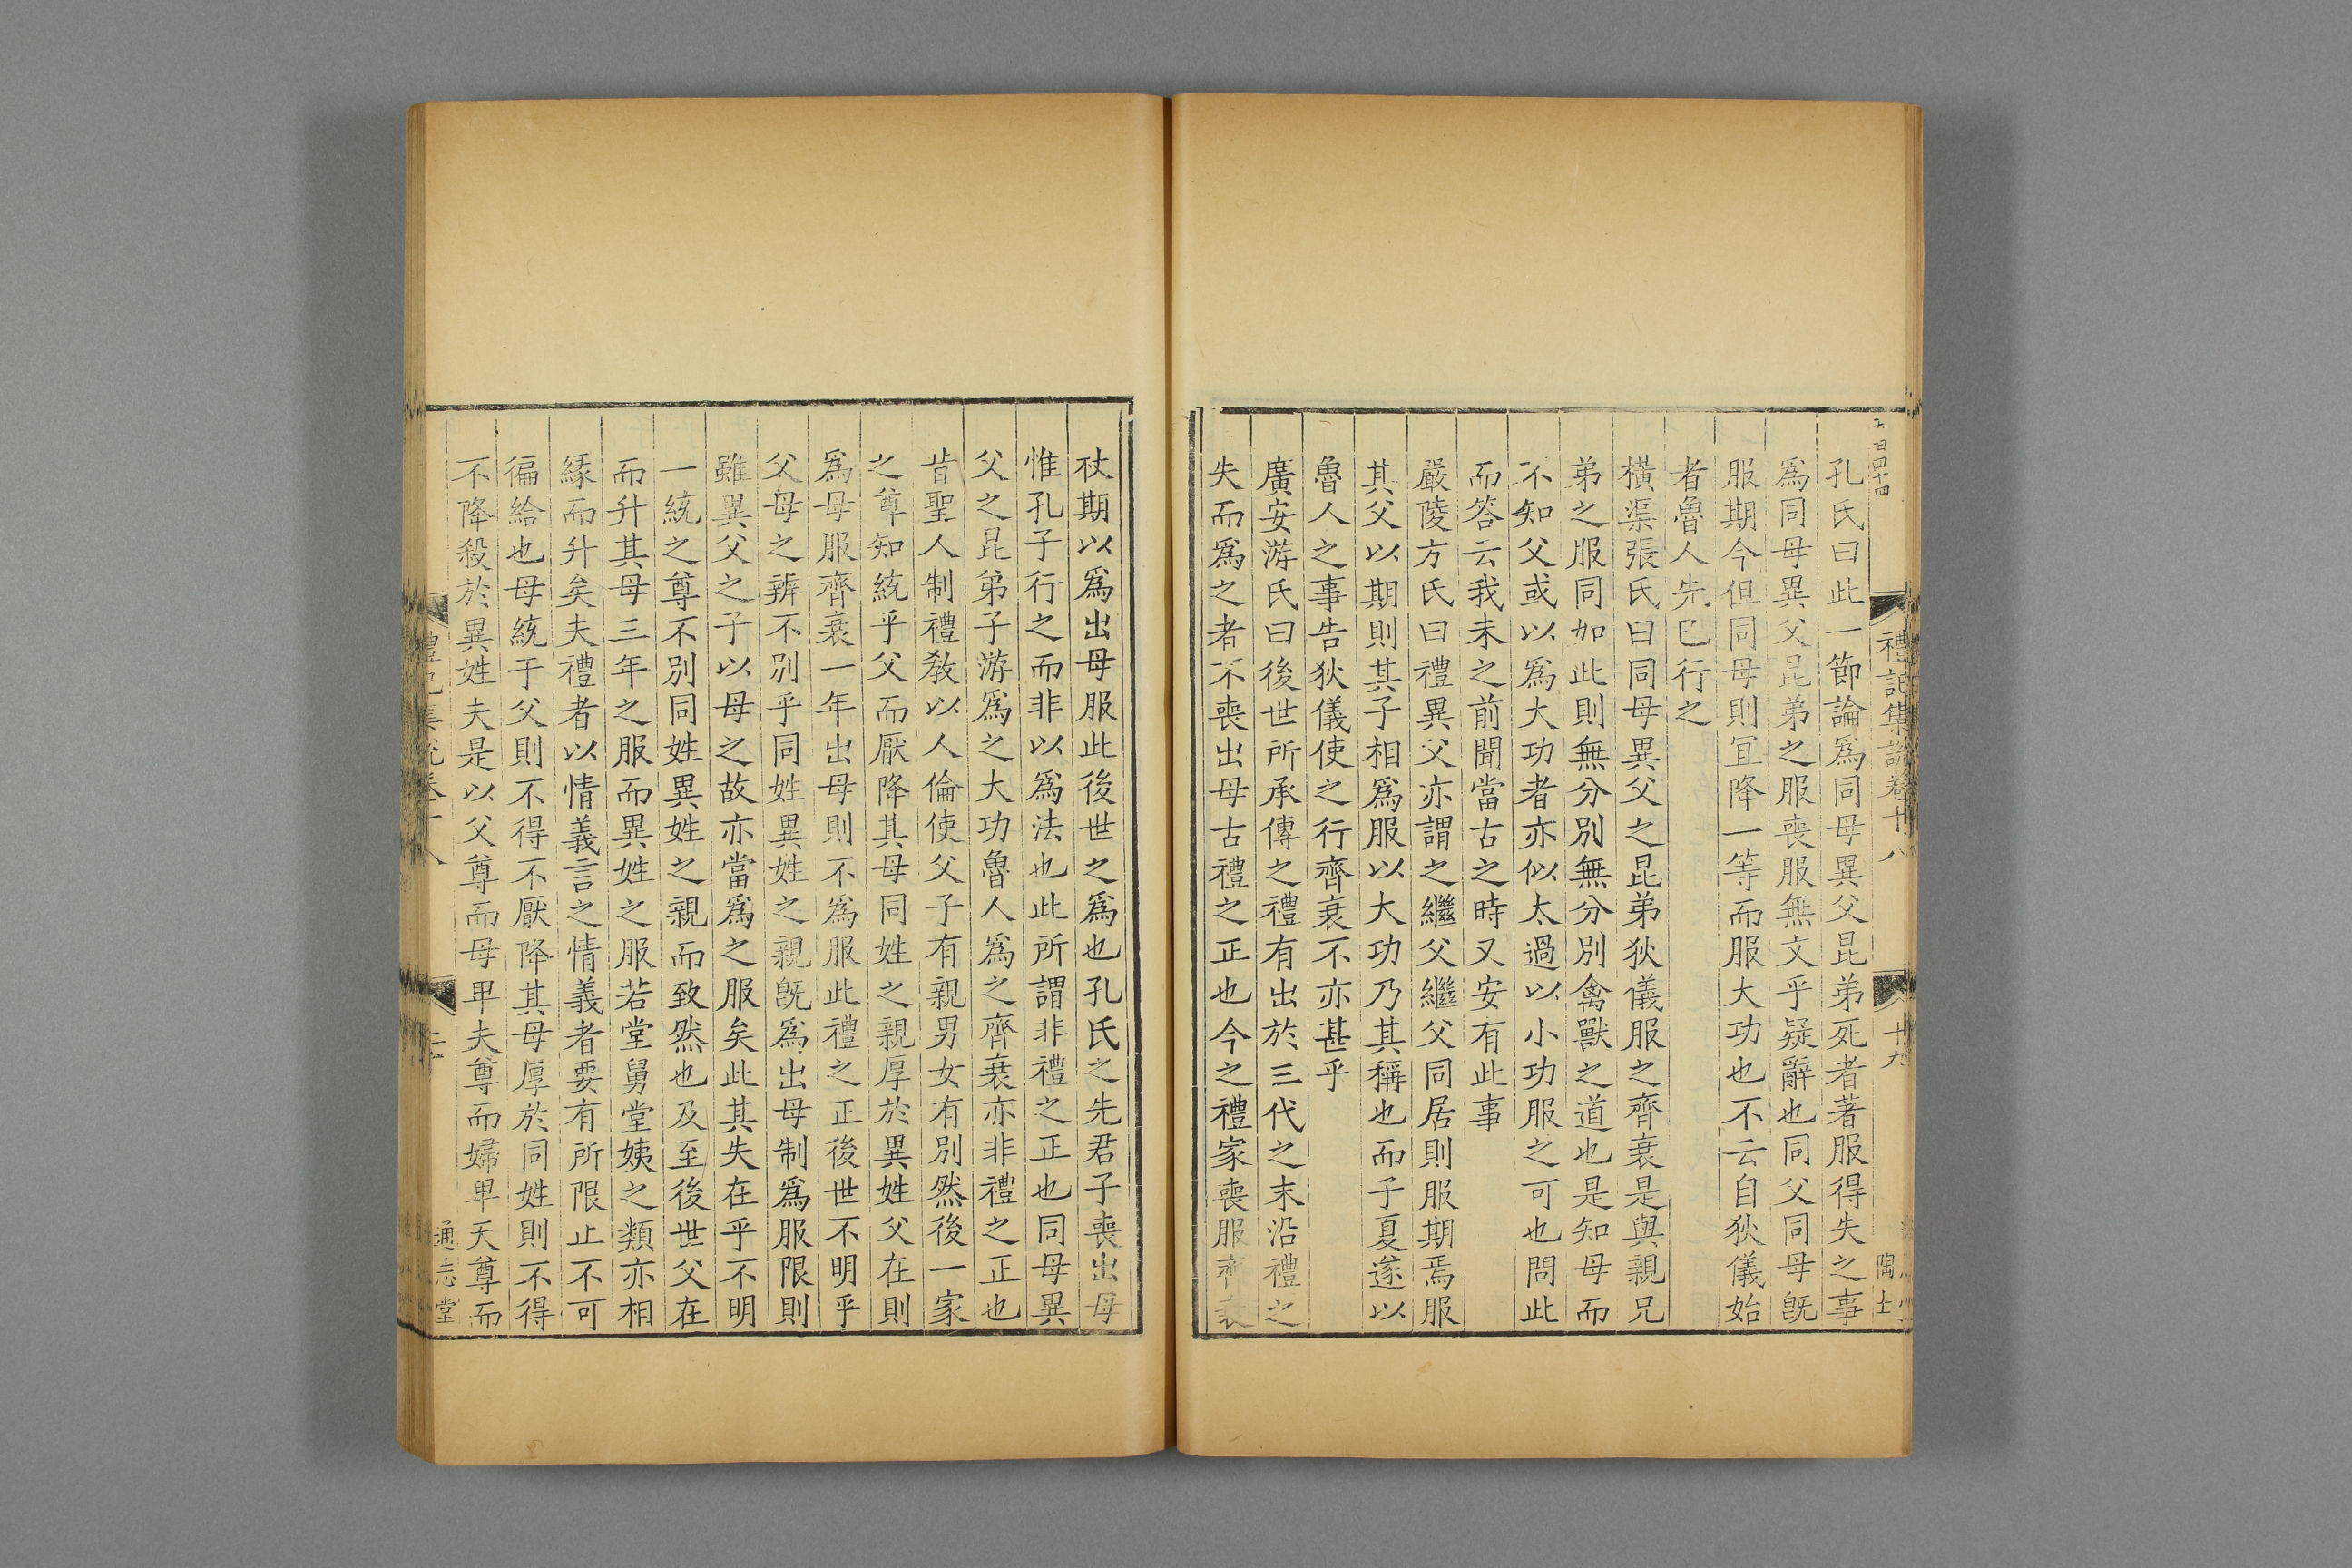 五百四十四
禮記集說卷十八
十九
陶士
孔氏曰此一節論爲同母異父昆弟死者著服得失之事
爲同母異父昆弟之服喪服無文乎疑辭也同父同母旣
服期今但同母則宜降一等而服大功也不云自狄儀始
者魯人先已行之
橫渠張氏曰同母異父之昆弟狄儀服之齊衰是與親兄
弟之服同如此則無分別無分別禽獸之道也是知母而
不知父或以爲大功者亦似太過以小功服之可也問此
而答云我未之前聞當古之時又安有此事
嚴陵方氏曰禮異父亦謂之繼父繼父同居則服期焉服
其父以期則其子相爲服以大功乃其稱也而子夏遂以
魯人之事告狄儀使之行齊衰不亦甚乎
廣安游氏曰後世所承傳之禮有出於三代之末沿禮之
失而爲之者不喪出母古禮之正也今之禮家喪服齊衰
杖期以爲出母服此後世之爲也孔氏之先君子喪出母
惟孔子行之而非以爲法也此所謂非禮之正也同母異
父之昆弟子游爲之大功魯人爲之齊衰亦非禮之正也
昔聖人制禮敎以人倫使父子有親男女有別然後一家
之尊知統乎父而厭降其母同姓之親厚於異姓父在則
爲母服齊衰一年出母則不爲服此禮之正後世不明乎
父母之辨不別乎同姓異姓之親旣爲出母制爲服限則
雖異父之子以母之故亦當爲之服矣此其失在乎不明
一統之尊不別同姓異姓之親而致然也及至後世父在
而升其母三年之服而異姓之服若堂舅堂姨之類亦相
緣而升矣夫禮者以情義言之情義者要有所限止不可
徧給也母統于父則不得不厭降其母厚於同姓則不得
不降殺於異姓夫是以父尊而母卑夫尊而婦卑天尊而
禮記集說卷十八
通志堂